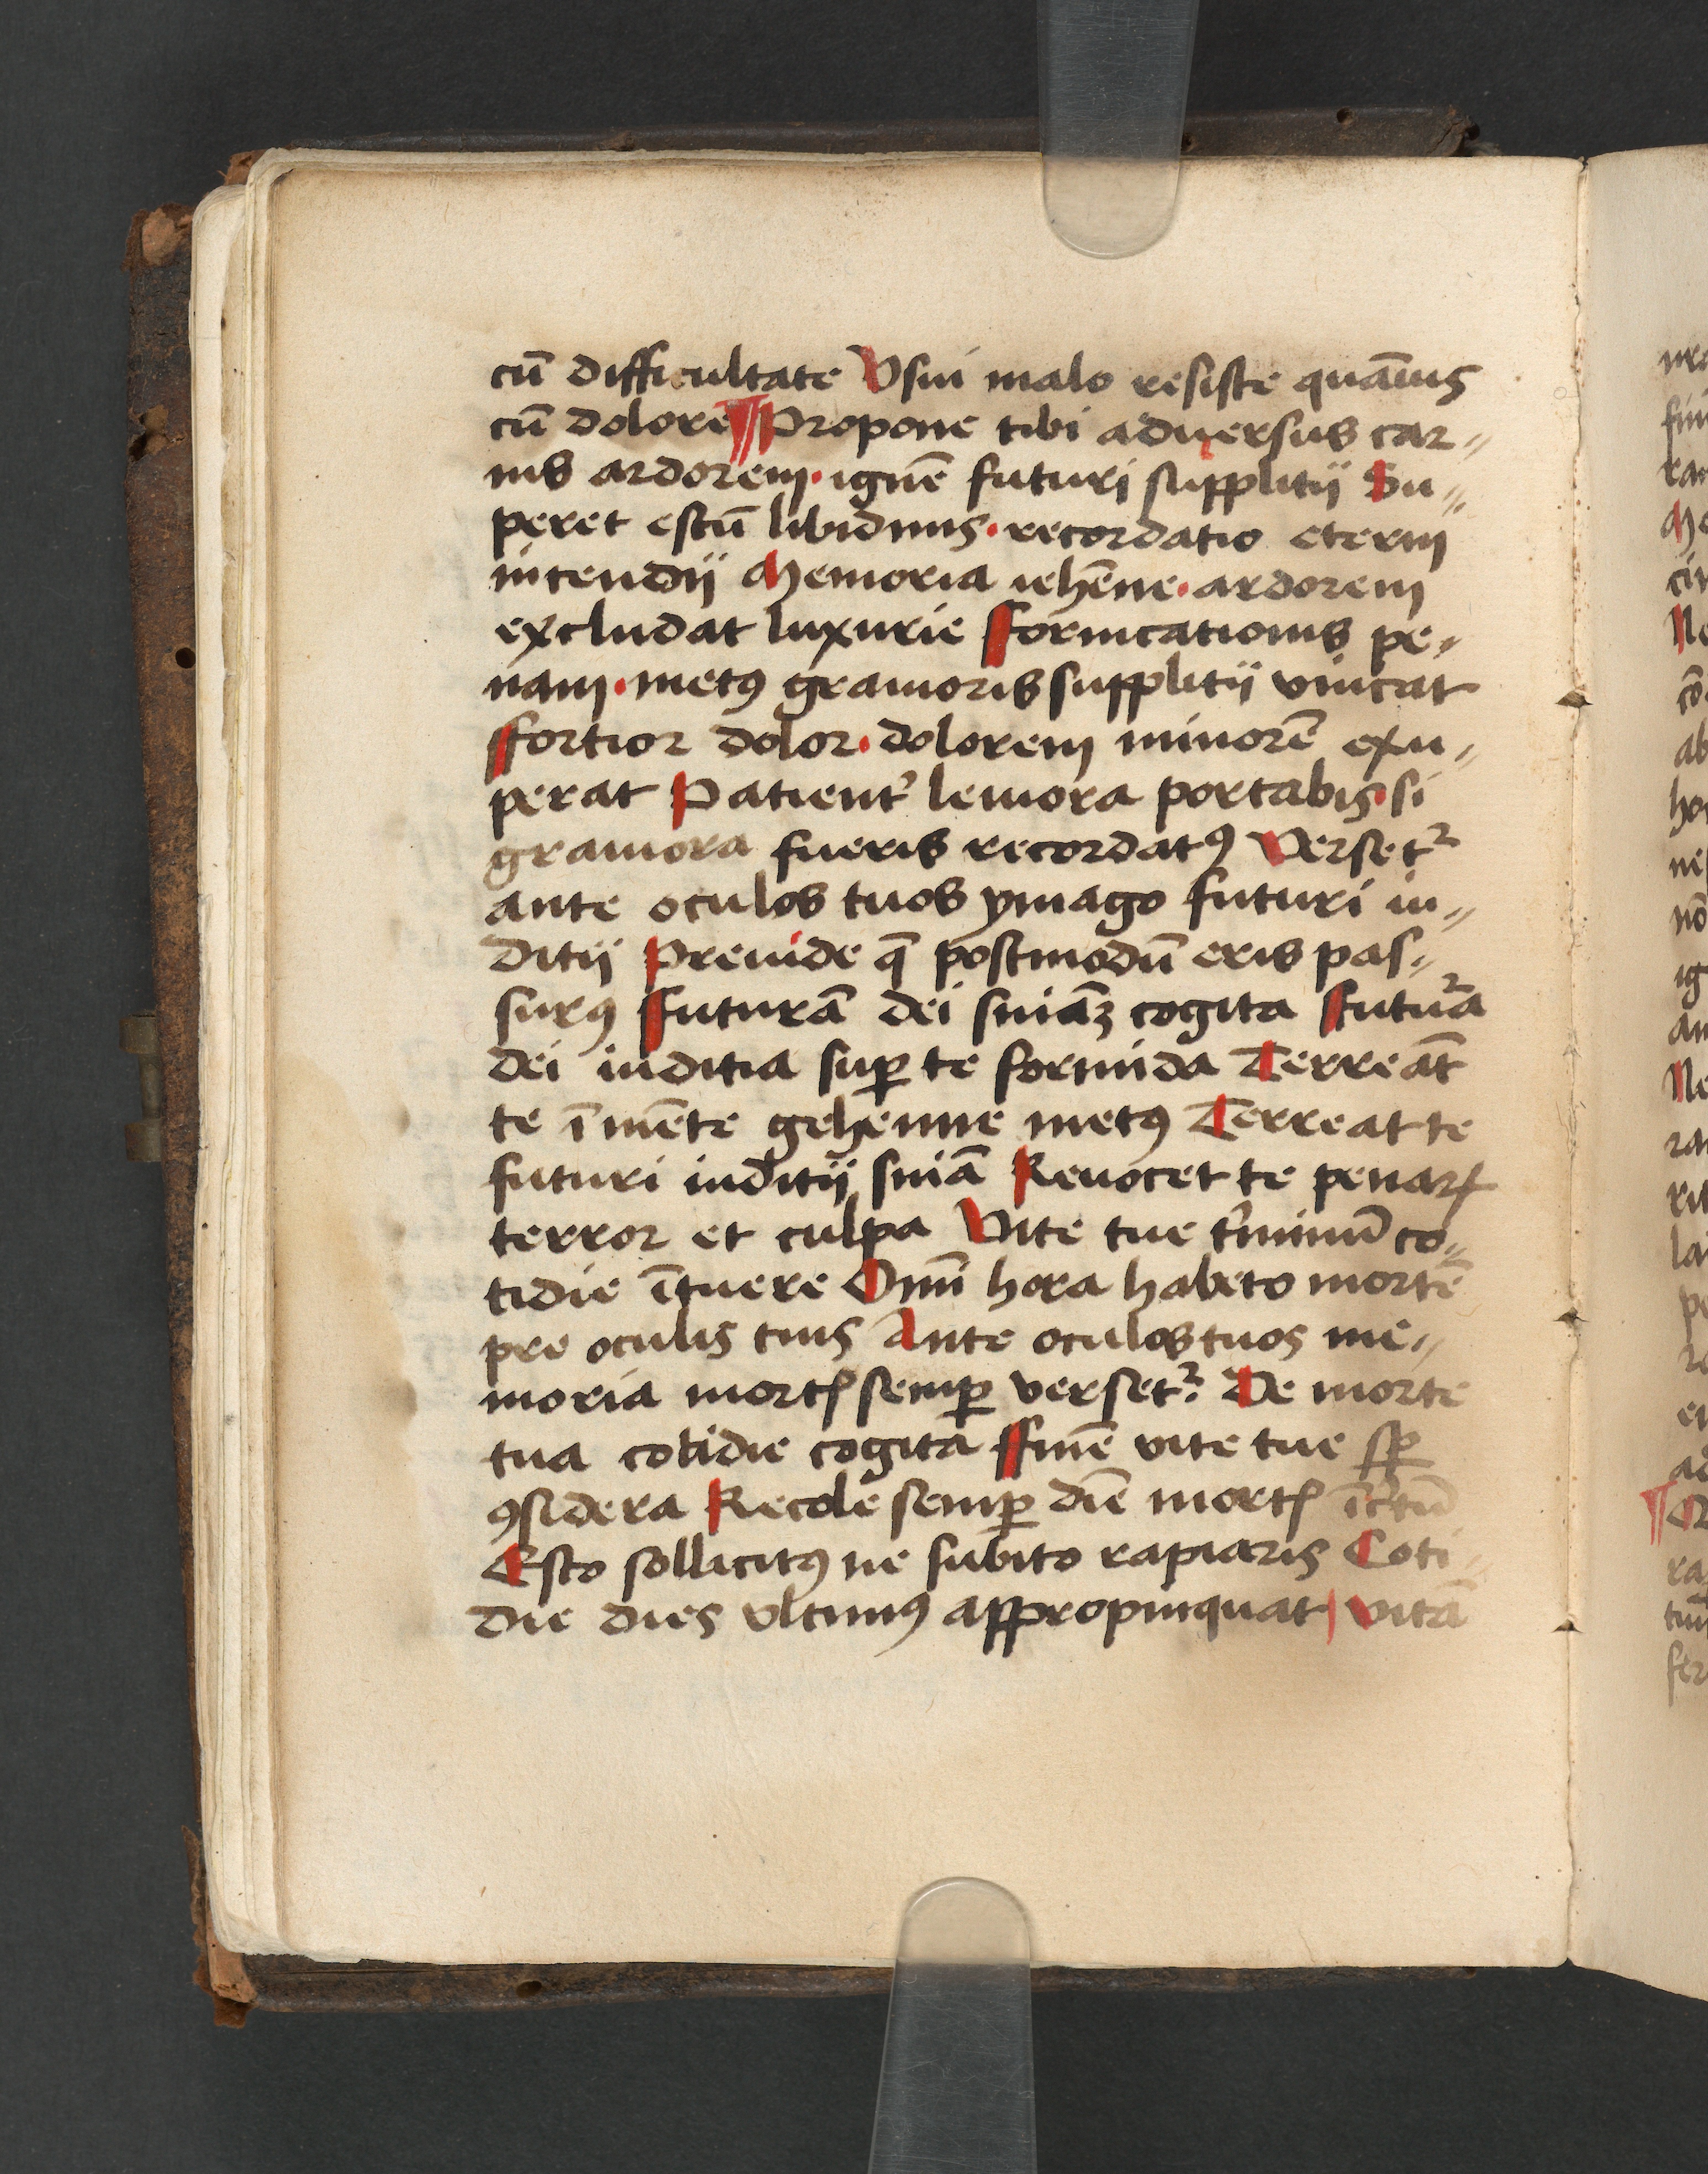 cū difficultate Vsui malo resiste quāuis
cū dolore ¶ Propone tibi aduersus car〃
nis ardorem · ignē futuri supplitii Su〃
peret estū libidinis · recordatio eterni
incendii Memoria iehēne · ardorem
excludat luxurie Fornicationis pe〃
nam · metꝯ grauioris supplitii vincat
ffortior dolor · dolorem minorē exu〃
perat Patient᷑ leuiora portabis · si
grauiora fueris recordatꝯ Versetᷣ
ante oculos tuos ymago futuri iu〃
ditii Preuide q̄ postmodū eris pas〃
surꝯ ffuturā dei sniāꝫ cogita ffutuᷣa
dei iuditia suꝑ te formida Terreāt
te ī mēte gehenne metꝯ Terreat te
futuri iuditii sniā Reuocet te penaꝝ
terror et culpa Vite tue t᷑minū co〃
tidie ītuere Omī hora habeto mortē
pre oculis tuis Ante oculos tuos me〃
moria mortꝭ semꝑ versetᷣ. De morte
tua cotidie cogita ffinē vite tue sꝑ
ꝯsidera Recole semꝑ diē mortꝭ īc᷑tū
Esto sollicitꝯ ne subito rapiaris Coti〃
die dies vltimꝯ appropinquat | vitā